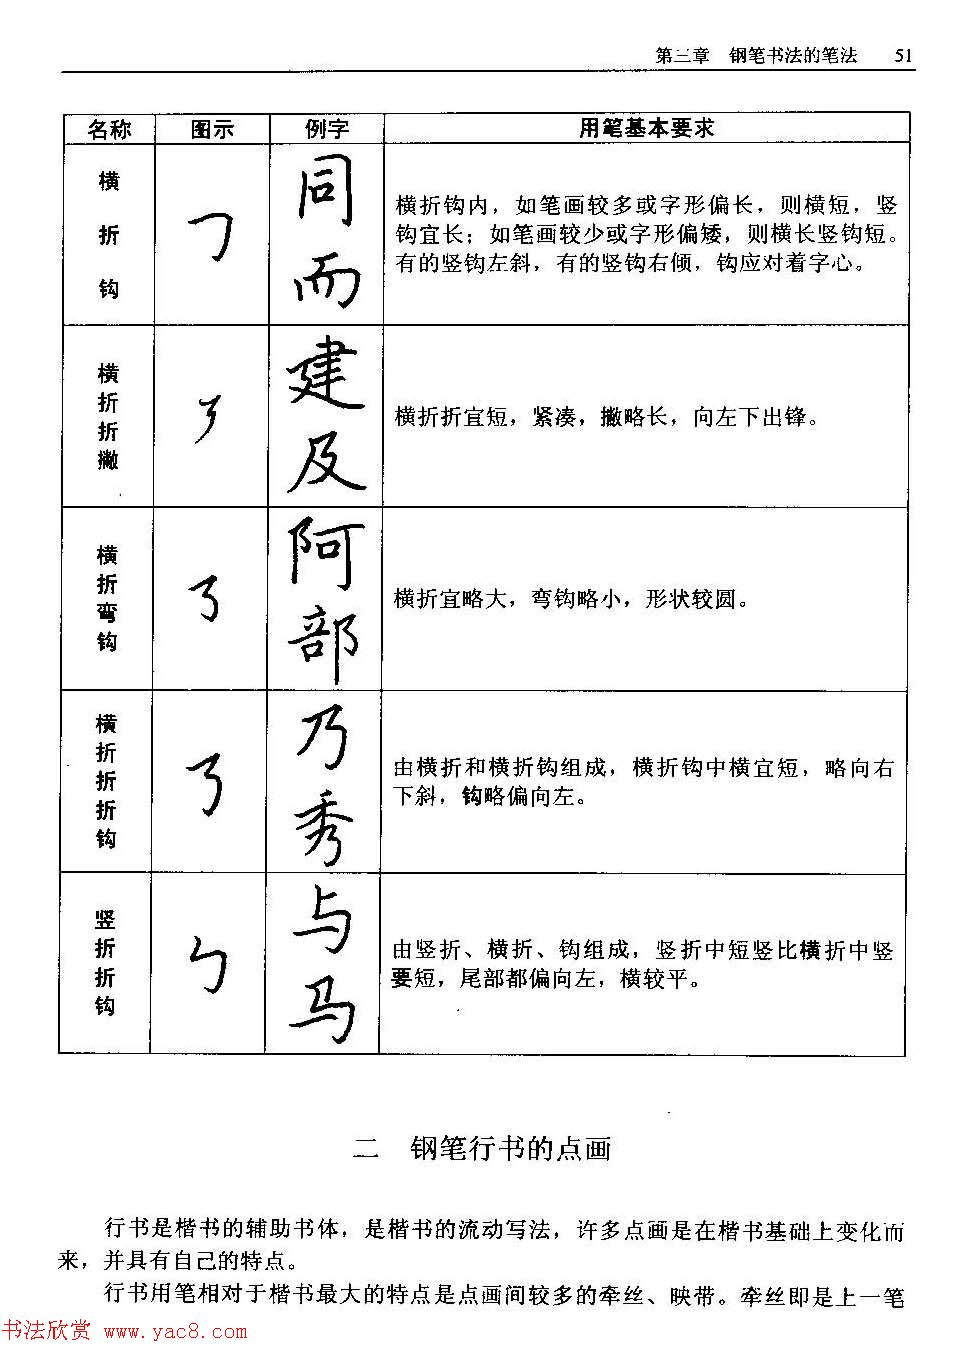 第三章 钢笔书法的笔法 51
名称 图示 例字 用笔基本要求
横
折
钩
㇆
同
而
横折钩内，如笔画较多或字形偏长，则横短，竖
钩宜长；如笔画较少或字形偏矮，则横长竖钩短。
有的竖钩左斜，有的竖钩右倾，钩应对着字心。
横
折
折
撇
㇋
建
及
横折折宜短，紧凑，撇略长，向左下出锋。
横
折
弯
钩
㇌
阿
部
横折宜略大，弯钩略小，形状较圆。
横
折
折
折
钩
㇡
乃
秀
由横折和横折钩组成，横折钩中横宜短，略向右
下斜，钩略偏向左。
竖
折
折
钩
㇉
与
马
由竖折、横折、钩组成，竖折中短竖比横折中竖
要短，尾部都偏向左，横较平。
二 钢笔行书的点画
行书是楷书的辅助书体，是楷书的流动写法，许多点画是在楷书基础上变化而
来，并具有自己的特点。
行书用笔相对于楷书最大的特点是点画间较多的牵丝、映带。牵丝即是上一笔
书法欣赏 www.yac8.com